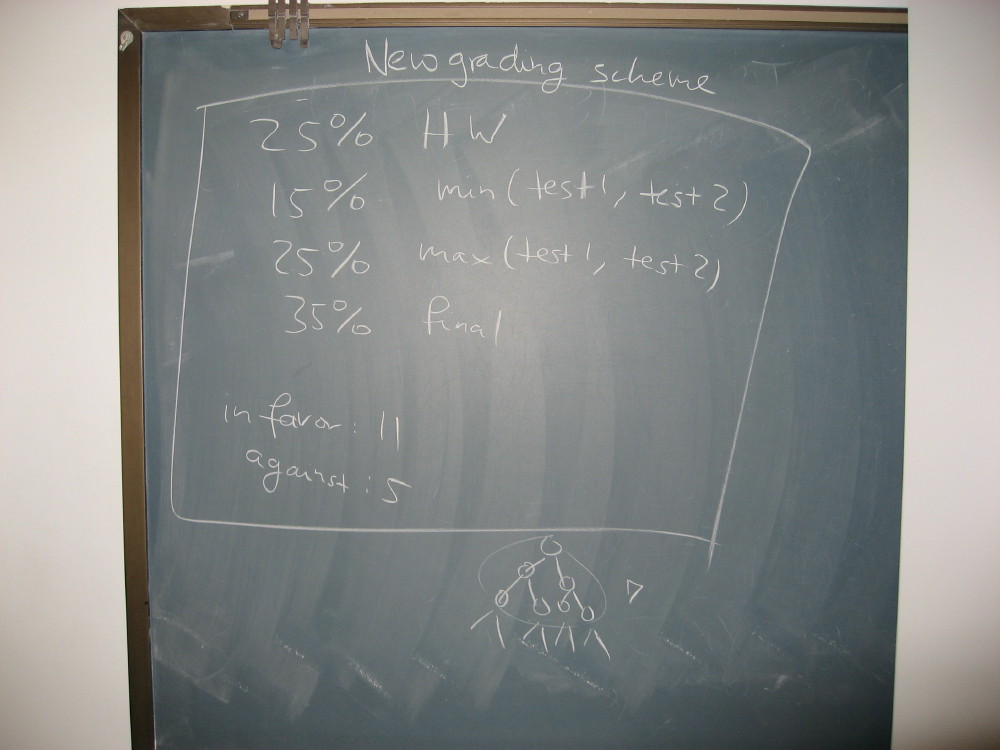 New grading scheme
25% HW
15% min(test1, test2)
25% max(test1, test2)
35% final
in favor: 11
against: 5